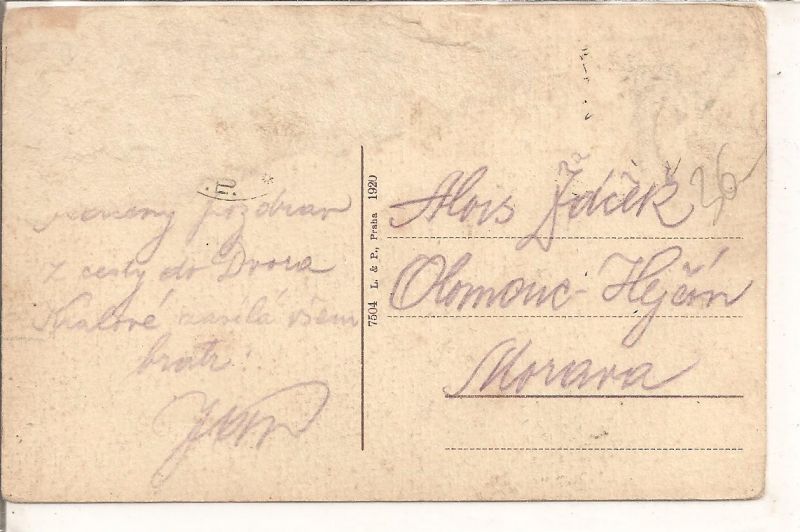 pozdrav
z cesty do Dvora
Králové zasílá všem
bratr
7504 L. & P., Praha 1920
Alois
Olomouc-Hejčín
Morava
26